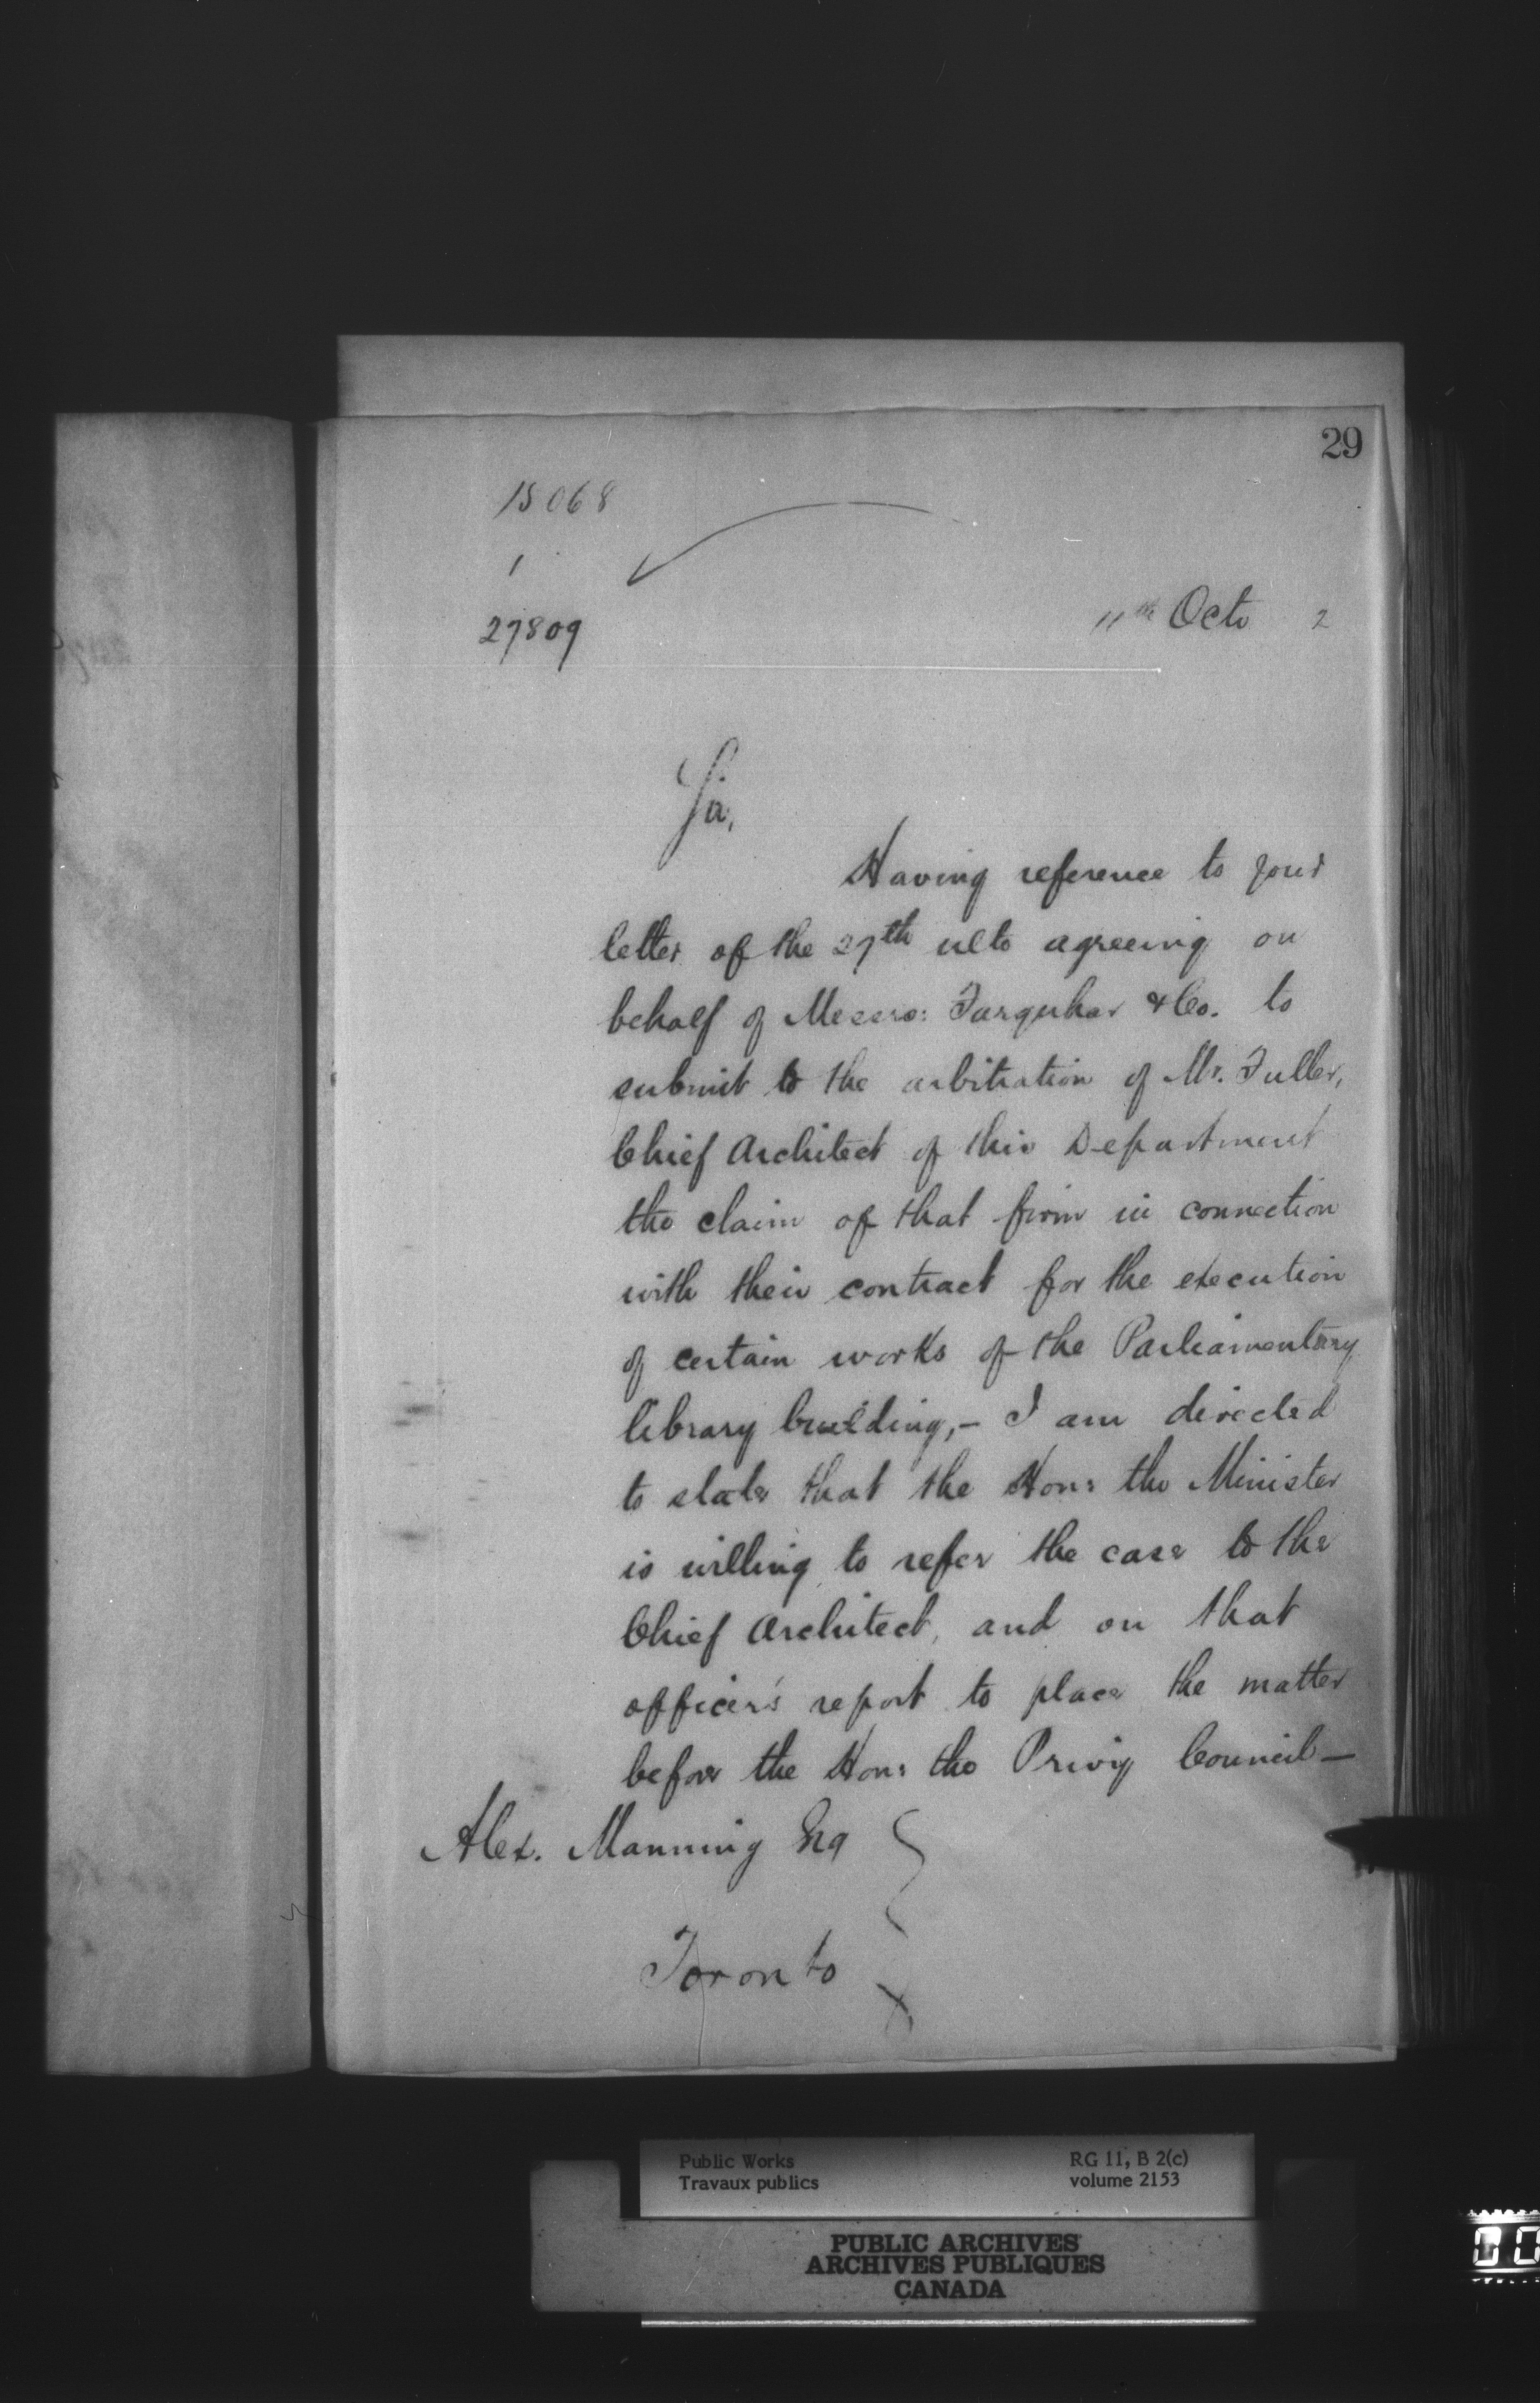 29
15068
1
27809
11th Octo 2
Sir,
Having reference to your
letter of the 27th ulto agreeing on
behalf of Messrs: Farquhar & Co. to
submit to the arbitration of Mr. Fuller,
Chief Architect of this Department
the claim of that firm in connection
with their contract for the execution
of certain works of the Parliamentary
library building,- I am directed
to state that the Hon: the Minister
is willing to refer the case to the
Chief Architect, and on that
officer's report to place the matter
before the Hon: the Privy Council —
Alex. Manning Esq
Toronto
Public Works
Travaux publics
RG 11, B 2(c)
volume 2153
PUBLIC ARCHIVES
ARCHIVES PUBLIQUES
CANADA